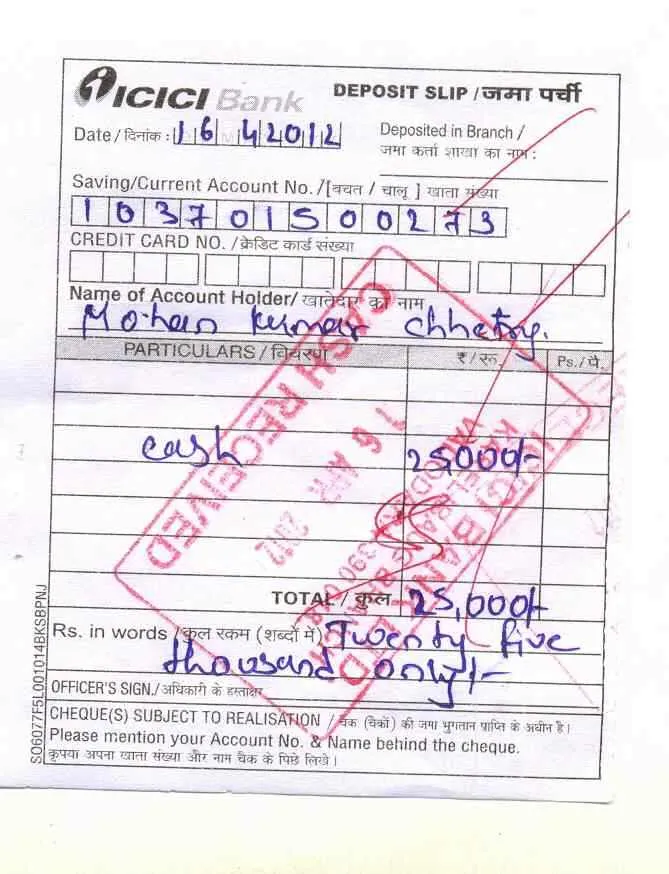 ICICI Bank
DEPOSIT SLIP / जमा पर्ची
Date / दिनांक : 16 4 2012
Deposited in Branch /
जमा कर्ता शाखा का नाम :
Saving/Current Account No. /[बचत / चालू ] खाता संख्या
103701500273
CREDIT CARD NO. / क्रेडिट कार्ड संख्या
Name of Account Holder/ खातेदार का नाम
Mohan Kumar Chhetry.
PARTICULARS / विवरण ₹ / रू. Ps. / पै.
CASH RECEIVED
16 APR 2012
ICICI BANK LTD
cash 25,000/-
TOTAL / कुल 25,000/-
Rs. in words / कुल रकम (शब्दों में) Twenty five
thousand only/-
OFFICER'S SIGN./ अधिकारी के हस्ताक्षर
CHEQUE(S) SUBJECT TO REALISATION / चेक (चेकों) की जमा भुगतान प्राप्ति के अधीन है।
Please mention your Account No. & Name behind the cheque.
कृपया अपना खाता संख्या और नाम चैक के पिछे लिखे।
SO6077F5L001014BKSBPNJ